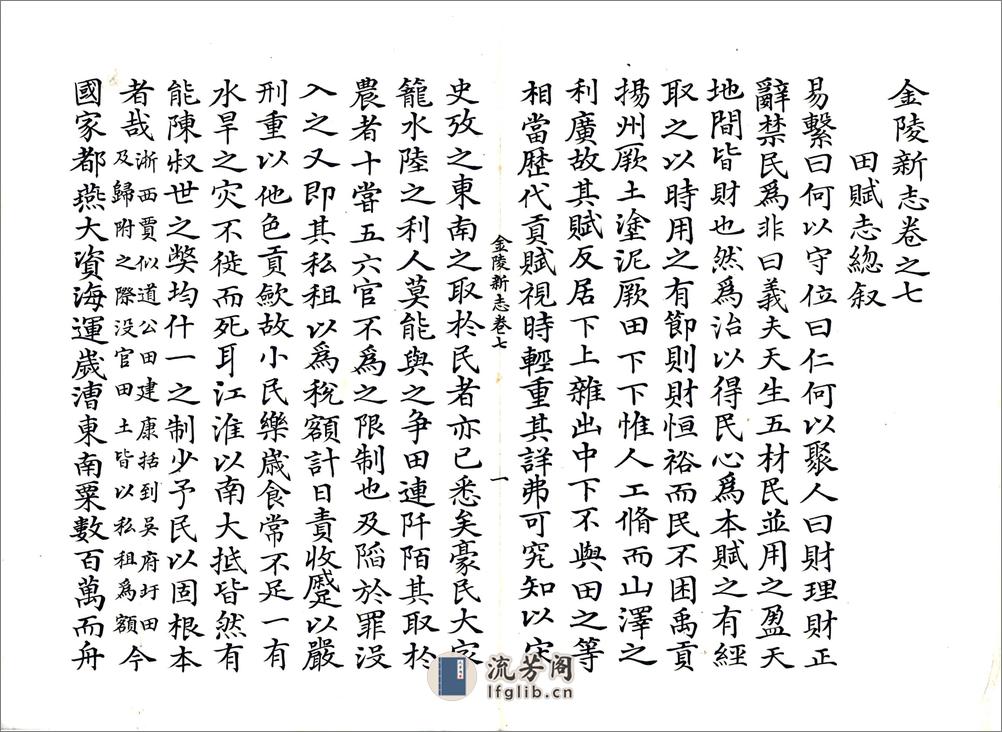 金陵新志卷之七
田賦志總叙
易繫曰何以守位曰仁何以聚人曰財理財正
辭禁民爲非曰義夫天生五材民並用之盈天
地間皆財也然爲治以得民心爲本賦之有經
取之以時用之有節則財恒裕而民不困禹貢
揚州厥土塗泥厥田下下惟人工脩而山澤之
利廣故其賦反居下上雜出中下不與田之等
相當歷代貢賦視時輕重其詳弗可究知以宋
金陵新志卷七
一
史攷之東南之取於民者亦已悉矣豪民大家
籠水陸之利人莫能與之争田連阡陌其取於
農者十嘗五六官不爲之限制也及䧟於罪没
入之又即其私租以爲稅額計日責收蹙以嚴
刑重以他色貢歛故小民樂歲食常不足一有
水旱之灾不徙而死耳江淮以南大抵皆然有
能陳叔世之獘均什一之制少予民以固根本
者哉浙西賈似道公田建康括到吴府圩田
及歸附之際没官田土皆以私租爲額今
國家都燕大資海運歲漕東南粟數百萬而舟
流芳阁
lfglib.cn